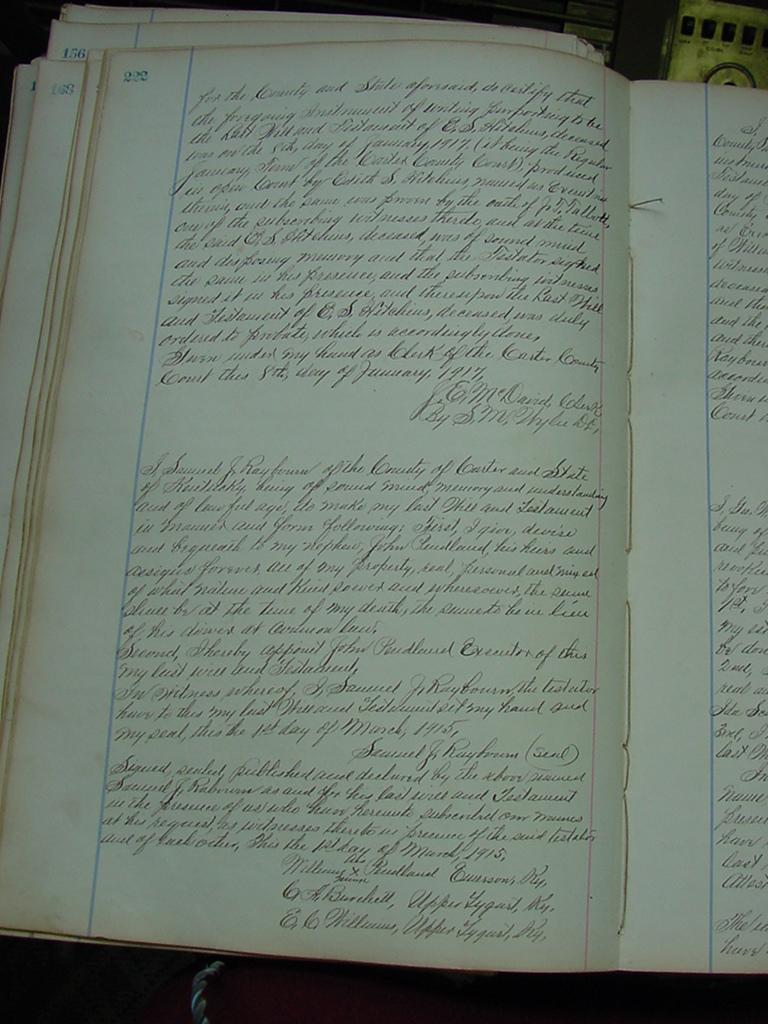 156
168
222
for the County and State aforesaid, do certify that
the foregoing instrument of writing purporting to be
the Last Will and Testament of E. S. Hitchins, deceased
was on the 8th, day of January, 1917, (it being the Regular
January, Term of the Carter County Court), produced
in open Court by Edith S. Hitchins, named as Executrix
therein, and the same was proven by the oath of J. T. Talbott,
one of the subscribing witnesses thereto, and at the time
the said E. S. Hitchins, deceased, was of sound mind
and disposing memory and that the Testator signed
the same in his presence, and the subscribing witnesses
signed it in his presence, and thereupon the Last Will
and Testament of E. S. Hitchins, deceased was duly
ordered to probate, which is accordingly done,
Given under my hand as Clerk of the Carter County
Court this 8th, day of January, 1917,
J. E. McDavid, Clerk
By S. M. Wylie D.C.,
I, Samuel J. Raybourn of the County of Carter and State
of Kentucky, being of sound mind, memory and understanding
and of lawful age, do make my last Will and Testament
in manner and form following: First, I give, devise
and bequeath to my nephew, John Rudland, his heirs and
assigns forever, all of my property, real, personal and mixed
of what nature and kind soever and wheresoever, the same
shall be at the time of my death, the same to be in lieu
of his dower at common law.
Second, I hereby appoint John Rudland Executor of this
my last will and Testament,
In witness whereof, I, Samuel J. Raybourn, the testator
have to this my last Will and Testament set my hand and
my seal, this the 1st day of March, 1915,
Samuel J. Raybourn (seal)
Signed, sealed, published and declared by the above named
Samuel J. Rabourn as and for his last will and Testament
in the presence of us who have hereunto subscribed our names
at his request as witnesses thereto in presence of the said testator
and of each other, This the 1st day of March, 1915,
William his x mark Rudland Emerson, Ky.
C. F. Burchett, Upper Tygart, Ky.
E. C. Williams, Upper Tygart, Ky,